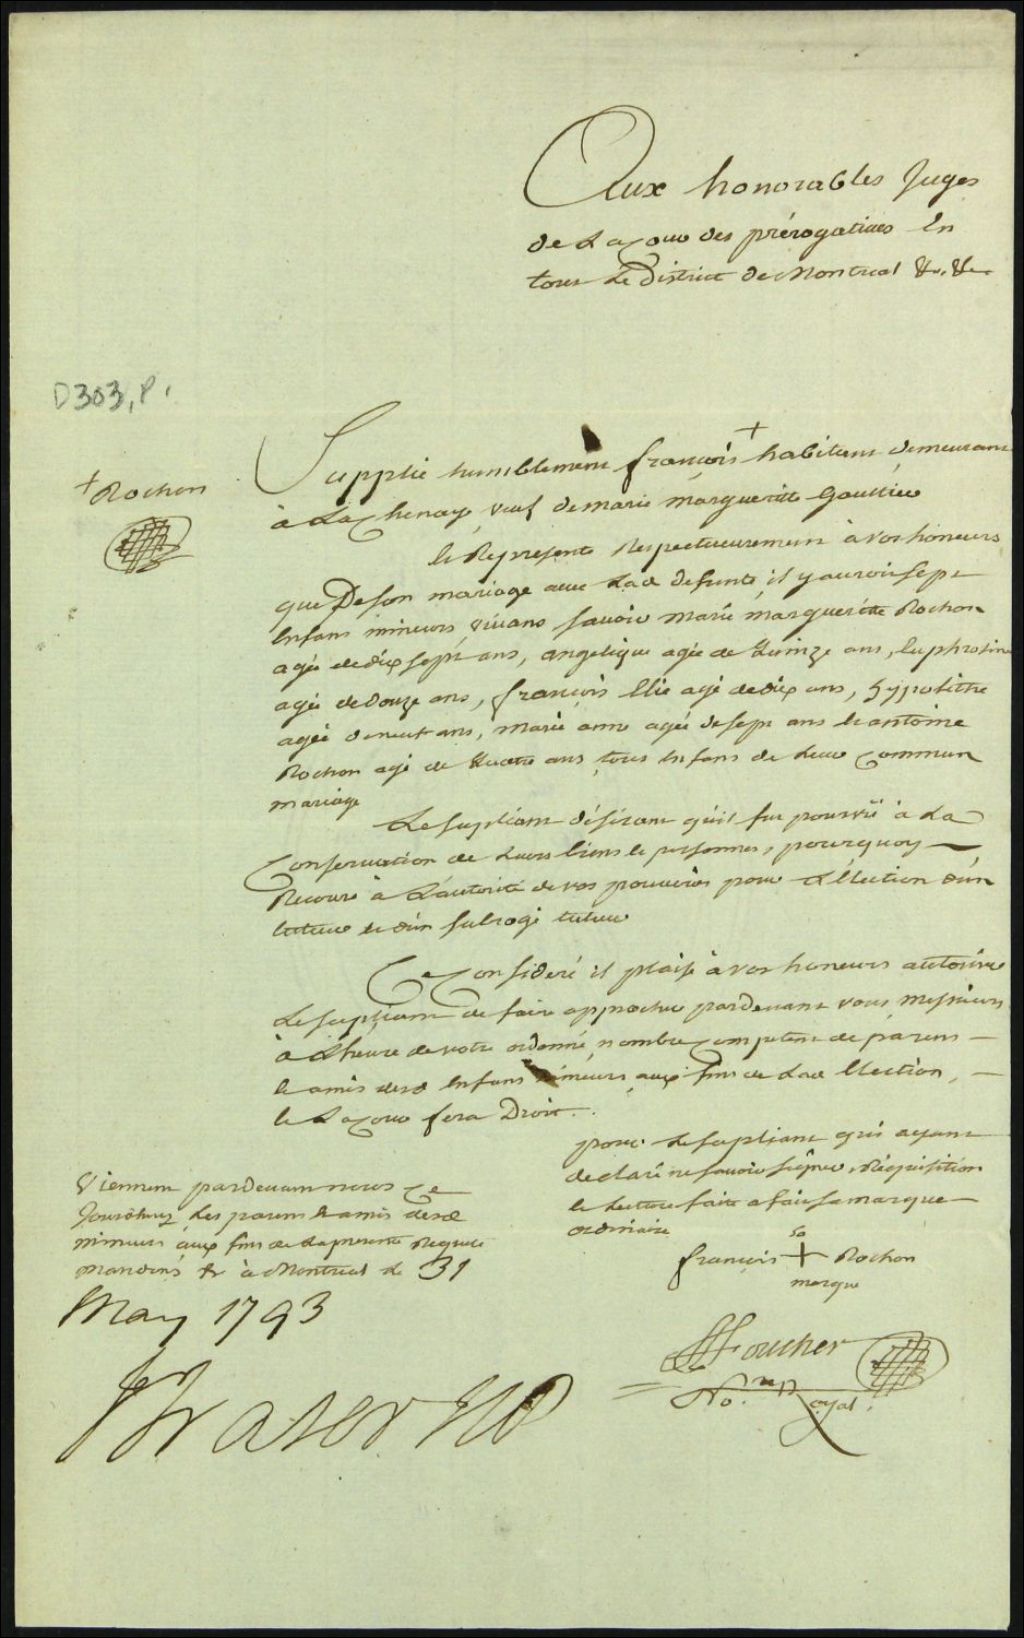 Aux honorables Juges
de La Cour des prérogatives En
tour Le District de Montreal &c. &c
D303, P.
+ Rochon
Supplie humblement françois + habitant demeurant
à La Chenaye, veuf de marie marguerite Gauttier
Et Represente Respectueusement à vos honeurs
que De son mariage avec Lad defunte, il y auroit sept
Enfans mineurs vivans savoir marie marguerite Rochon
agée de dix sept ans, angelique agée de Quinze ans, Euphrosine
agée de douze ans, françois Elie agé de dix ans, hypolithe
agée de neuf ans, marie anne agée de sept ans et antoine
Rochon agé de Quatre ans tous Enfans de Leur Commun
mariage
Le supliant désirant qu'il fut pourvû à La
Conservation de Leurs biens et personnes, pourquoy
Recoure à L'autorité de vos pouvoirs pour L'Election d'un
tuteur et d'un subrogé tuteur
Ce Consideré il plaise à vos honeurs autorise
Le supliant de faire approcher pardevant vous Messieurs
à L'heure de votre ordonné nombre Competent de parens
et amis desd Enfans mineurs aux fins de Lad Election,
et La Cour fera Droit.
pour Le supliant qui ayant
declaré ne savoir signer, Réquisition
et Lecture faite a fait sa marque
ordinaire
sa
françois + Rochon
marque
Viennent pardevant nous Ce
Jourdhuy Les parens et amis desd
mineurs aux fins de La presente Requete
Mandons &c à Montreal Le 31
May 1793
Foucher
No.re Royal
Fraser